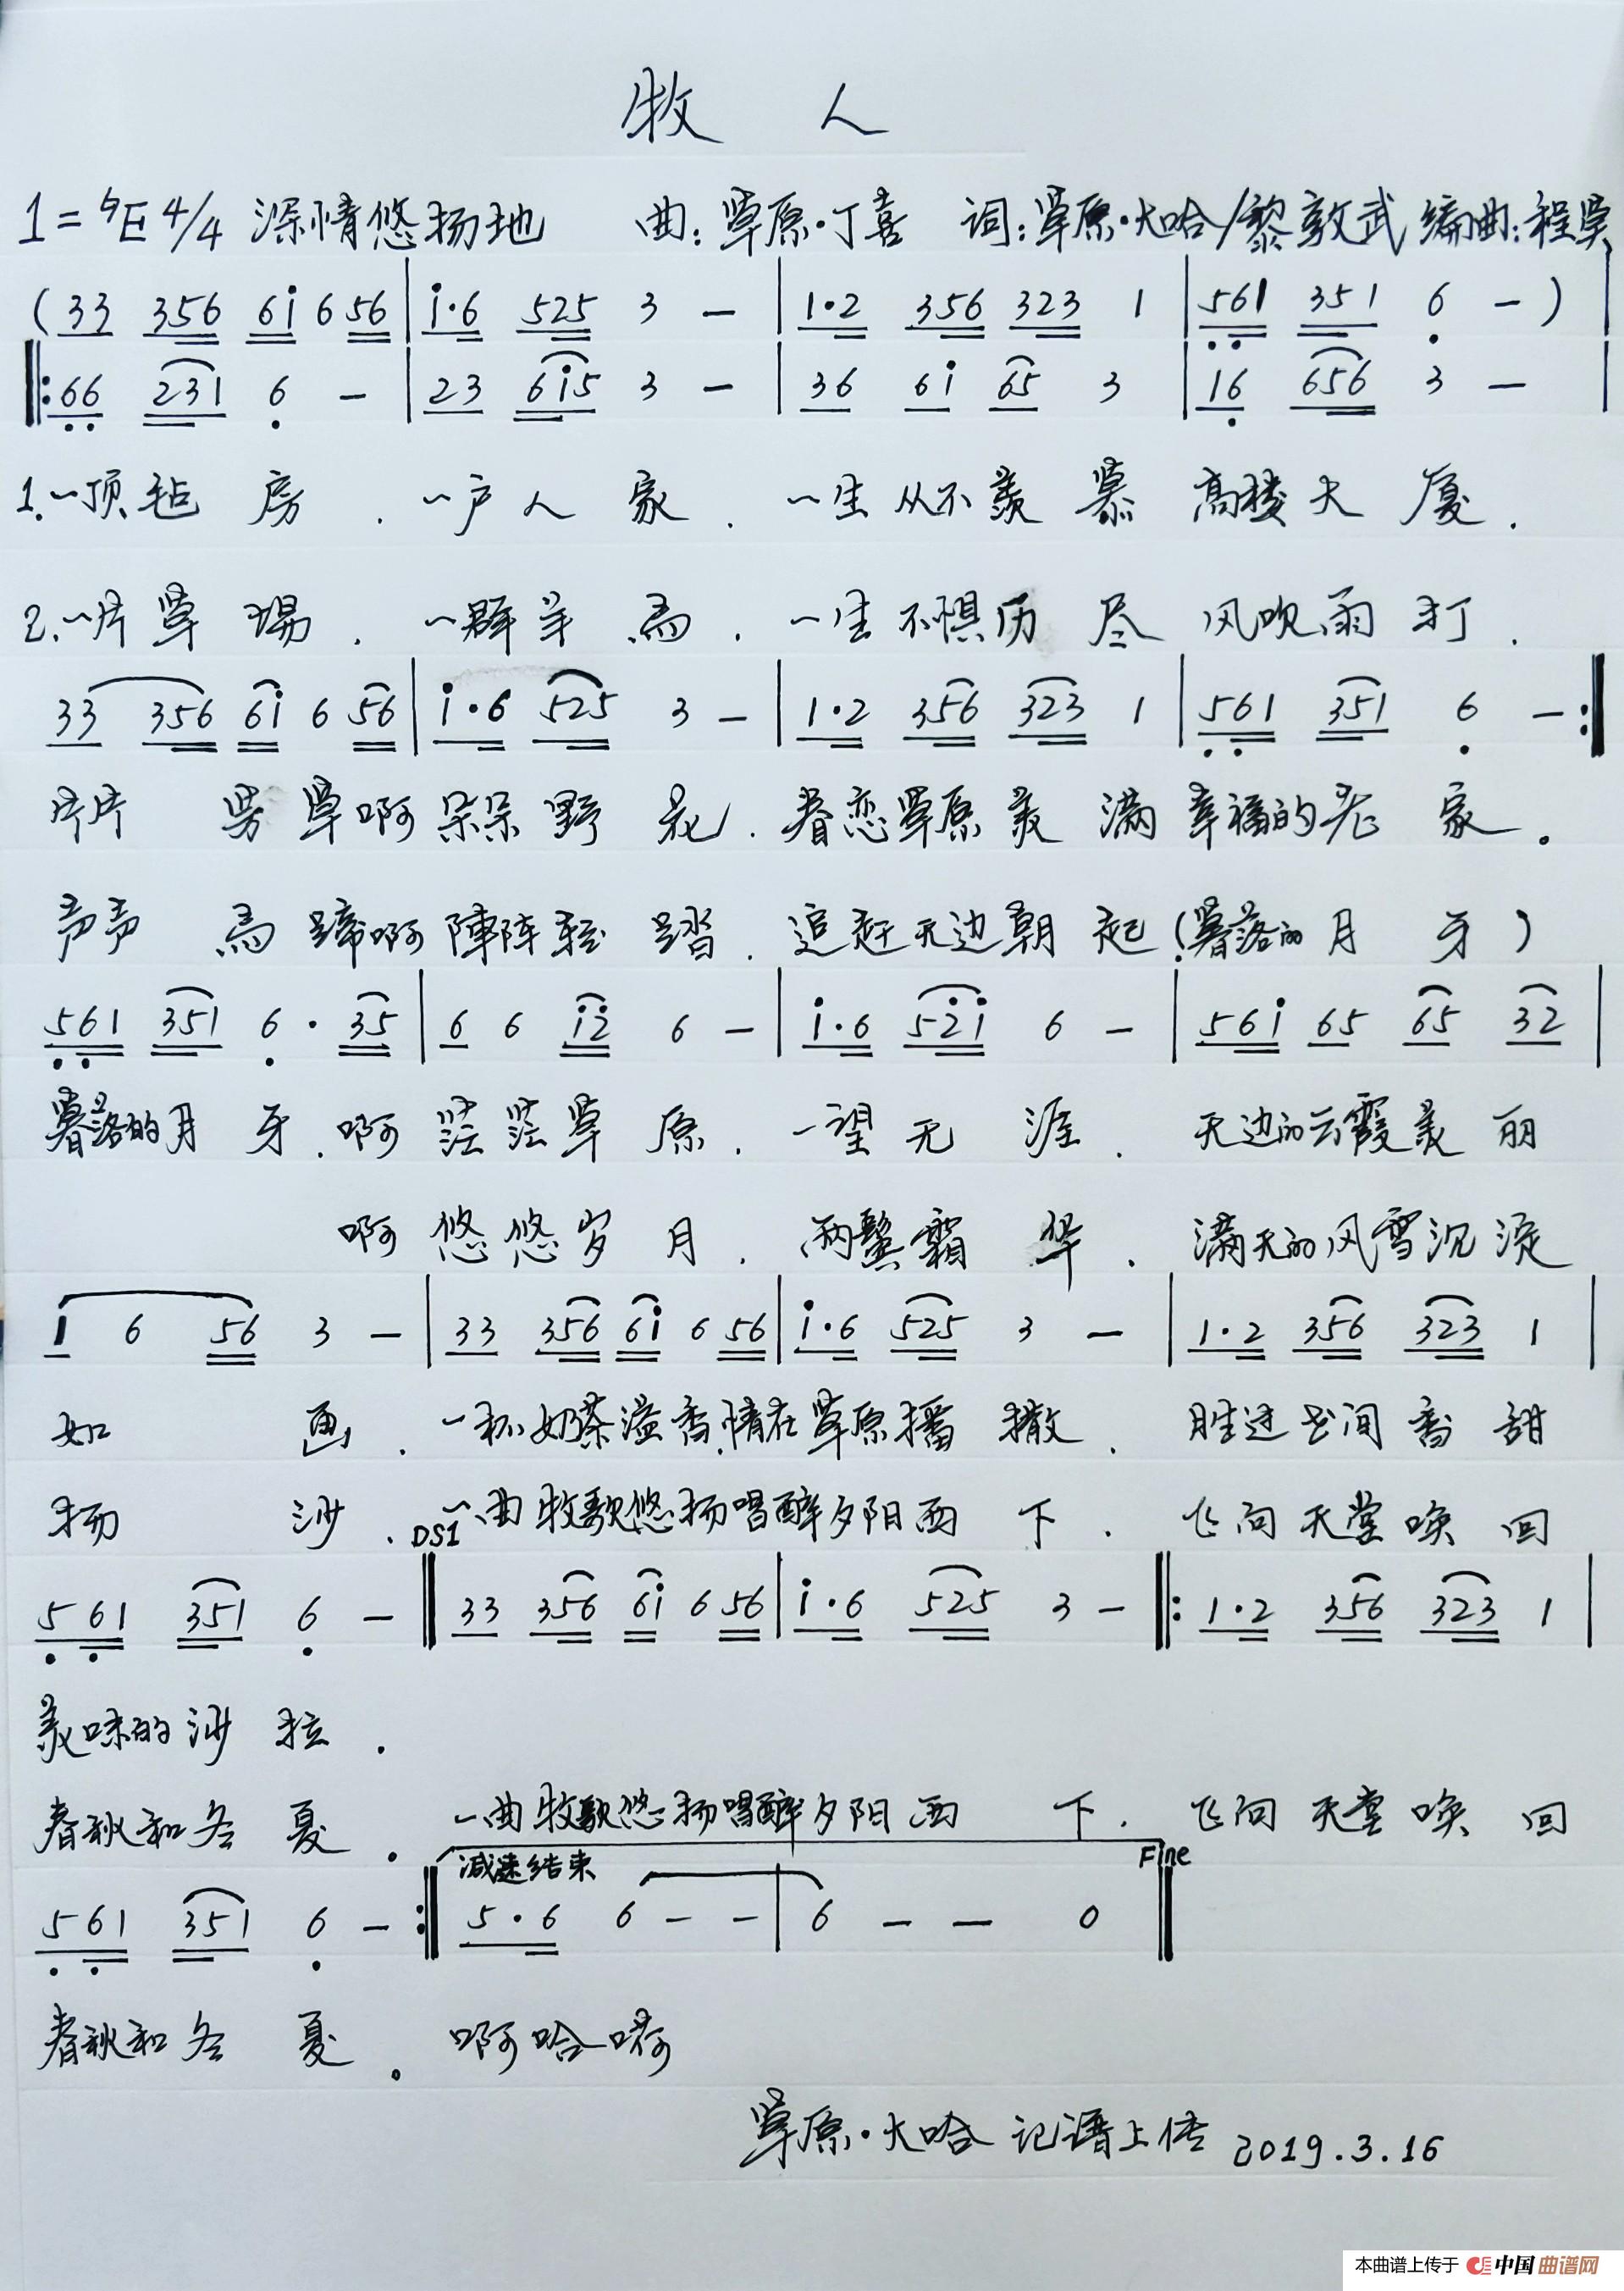 牧 人
1=♮E 4/4 深情悠扬地 曲:草原·丁喜 词:草原·大哈/黎敦武 编曲:程昊
(33 356 6i 6 56 | i·6 525 3 — | 1·2 356 323 1 | 561 351 6 —) |
‖: 66 231 6 — | 23 6i5 3 — | 36 6i 65 3 | 16 656 3 — |
1.一顶毡房.一户人家.一生从不羡慕高楼大厦.
2.一片草场.一群羊马.一生不惧历尽风吹雨打.
33 356 6i 6 56 | i·6 525 3 — | 1·2 356 323 1 | 561 351 6 — :‖
片片芳草啊朵朵野花.眷恋草原美满幸福的老家。
声声马蹄啊陣阵轻踏.追赶无边朝起(暮落的月牙)
561 351 6· 35 | 6 6 i2 6 — | i·6 52i 6 — | 56i 65 65 32 |
暮落的月牙.啊茫茫草原.一望无涯.天边的云霞美丽
啊悠悠岁月.两鬓霜华.满天的风雪沉淀
i 6 56 3 — | 33 356 6i 6 56 | i·6 525 3 — | 1·2 356 323 1 |
如画.一杯奶茶溢香.情在草原播撒.胜过世间香甜
扬沙.一曲牧歌悠扬唱醉夕阳西下.飞向天堂唤回
DS1
561 351 6 — ‖ 33 356 6i 6 56 | i·6 525 3 — ‖: 1·2 356 323 1 |
美味的沙拉.
春秋和冬夏.一曲牧歌悠扬唱醉夕阳西下.飞向天堂唤回
减速结束 Fine
561 351 6 — :‖ 5·6 6 — — | 6 — — 0 ‖
春秋和冬夏。啊哈嗬
草原·大哈 记谱上传 2019.3.16
本曲谱上传于 中国曲谱网